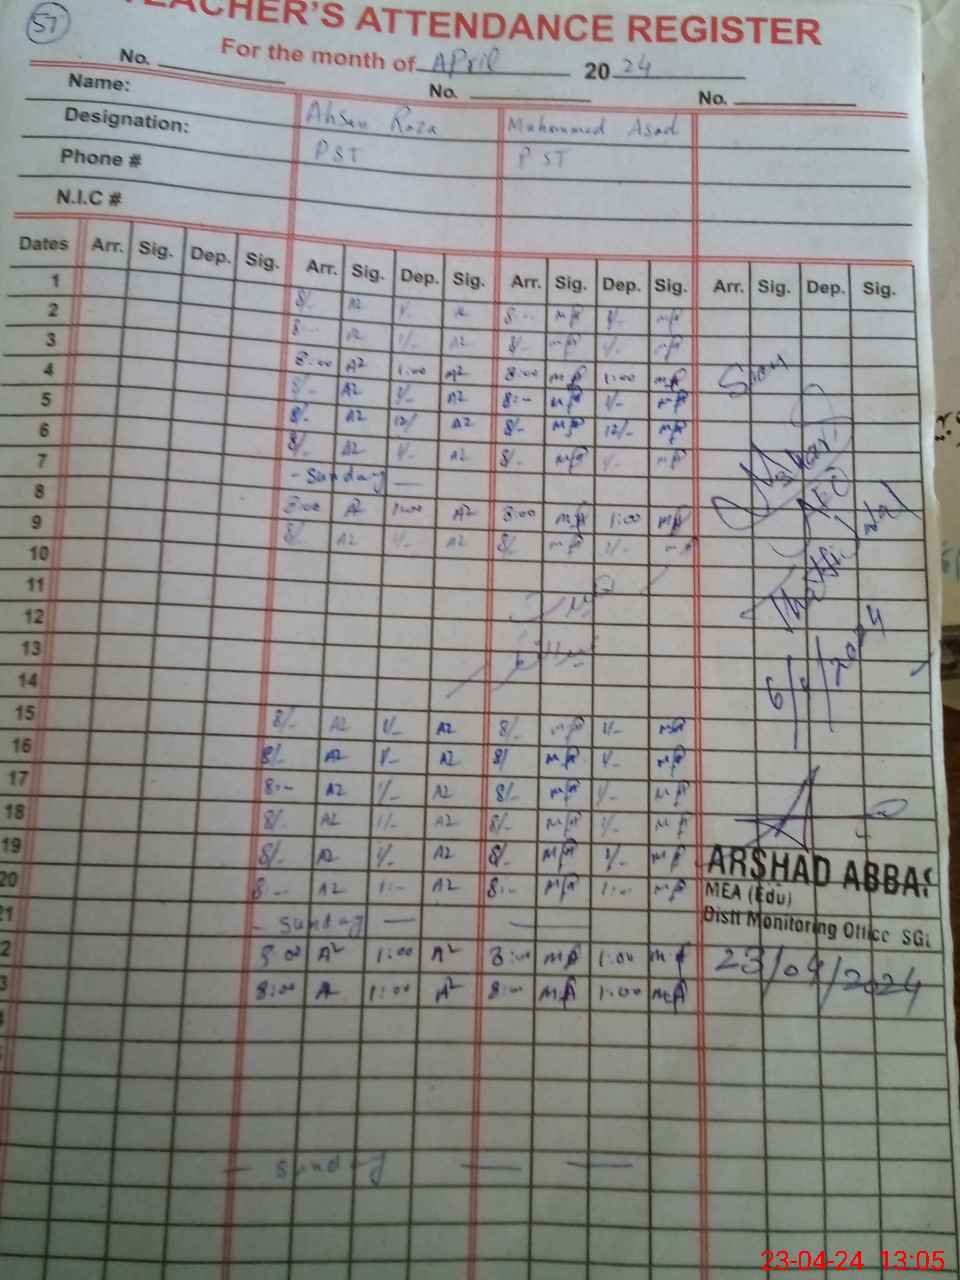 57
TEACHER'S ATTENDANCE REGISTER
For the month of April 2024
No. No. No.
Name: Ahsan Raza Muhammad Asad
Designation: PST PST
Phone #
N.I.C #
Dates Arr. Sig. Dep. Sig. Arr. Sig. Dep. Sig. Arr. Sig. Dep. Sig. Arr. Sig. Dep. Sig.
1 8/- A2 1/- A2 8:-- MA 1/- MA
2 8:-- A2 1/- A2 8/- MA 1/- MA
3 8:00 A2 1:00 A2 8:00 MA 1:00 MA
4 8/- A2 1/- A2 8:-- MA 1/- MA
5 8/- A2 12/- A2 8/- MA 12/- MA
6 8/- A2 1/- A2 8/- MA 1/- MA
7 - Sunday —
8 8:00 A2 1:00 A2 8:00 MA 1:00 MA
9 8/- A2 1/- A2 8/- MA 1/- MA
10
11
12
13
14
15 8/- A2 1/- A2 8/- MA 1/- MA
16 8/- A2 1/- A2 8/ MA 1/- MA
17 8:-- A2 1/- A2 8/- MA 1/- MA
18 8/- A2 1/- A2 8/- MA 1/- MA
19 8/- A2 1/- A2 8/- MA 1/- MA
20 8:-- A2 1:- A2 8:-- MA 1:- MA
21 - Sunday — —
2 8:00 A2 1:00 A2 8:00 MA 1:00 MA
3 8:00 A2 1:00 A2 8:00 MA 1:00 MA
— Sunday — —
AEO
6/4/2024
ARSHAD ABBAS
MEA (Edu)
Distt Monitoring Office SGD
23/04/2024
23-04-24 13:05